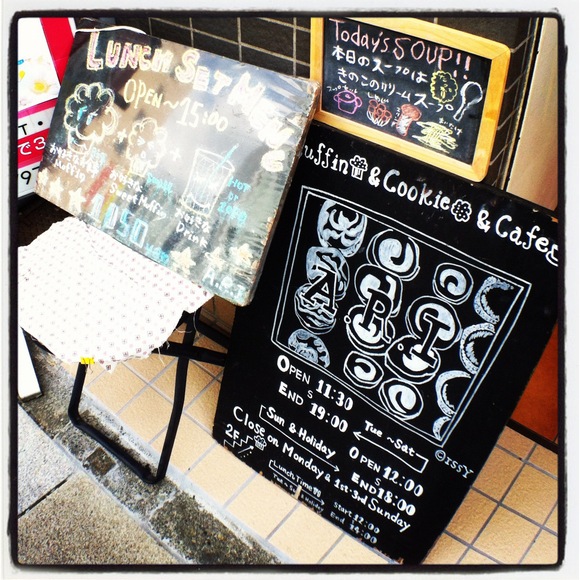 LUNCH SET MENU
OPEN~15:00
Muffin
Sweet Muffin
Drink
HOT
or
1050
Today's SOUP!!
本日のスープは
きのこのクリームスープ
uffin & Cookie & Cafe
A.R.I
©ISSY
OPEN 11:30
END 19:00
Tue ~Sat
Sun & Holiday
OPEN 12:00
END 18:00
Close on Monday & 1st 3rd Sunday
2F
Lunch Time
Start 12:00
End